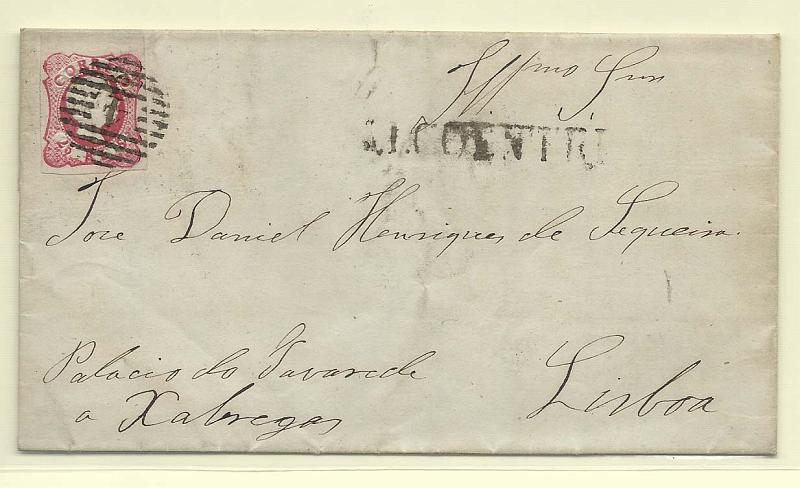 CORREIO
25
Illmo Snr
ALCOENTRE
Jose Daniel Henriques de Sequeira.
Palacio do Tavarede
a Xabregas
Lisboa